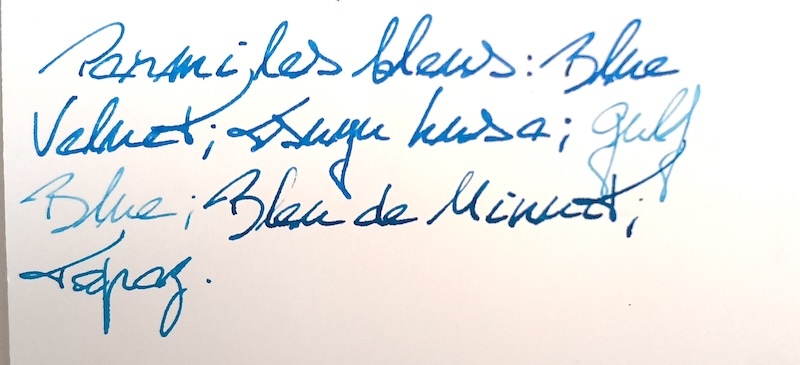 Parmi, les bleus : Blue
Velvet ; Tsuyu kusa ; Gulf
Blue ; Bleu de Minuit ;
Topaz.